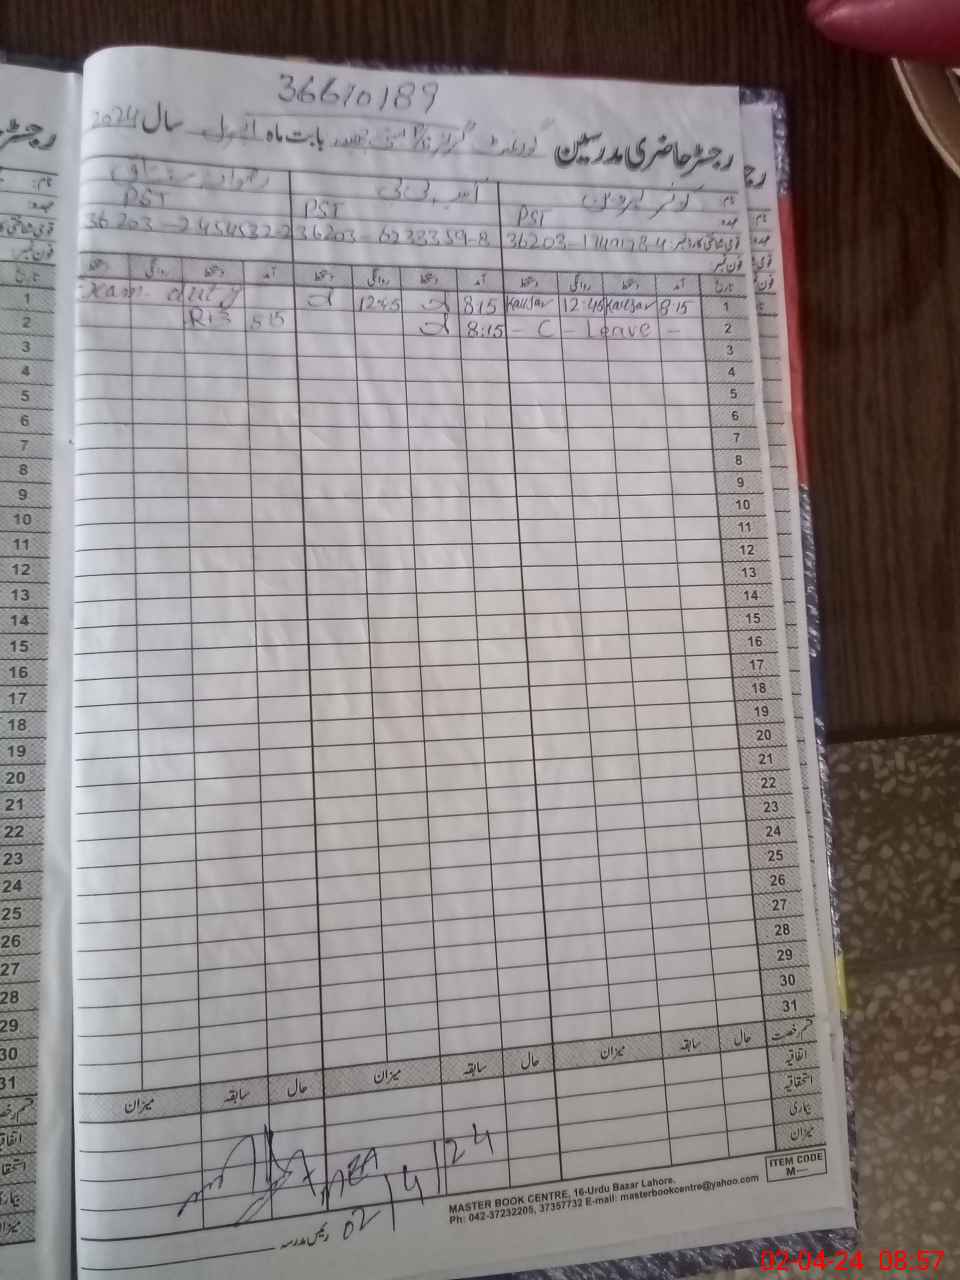 36610189
رجسٹر حاضری مدرسین گورنمنٹ گرلز بابت ماہ اپریل سال 2024
نام: کوثر پروین
عہدہ PST PST PST
قومی شناختی کارڈ نمبر: 36203-6233359-8
فون نمبر:
تاریخ آمد دستخط روانگی دستخط آمد دستخط روانگی دستخط آمد دستخط روانگی دستخط
1 8:15 Kausar 12:45 Kausar 8:15 12:45 Exam duty
2 - C - Leave - 8:15 8:15
3
4
5
6
7
8
9
10
11
12
13
14
15
16
17
18
19
20
21
22
23
24
25
26
27
28
29
30
31
قسم رخصت حال سابقہ میزان حال سابقہ میزان حال سابقہ میزان
اتفاقیہ
استحقاقیہ
بیماری
میزان
AEA
02/4/24
رئیس مدرسہ
ITEM CODE
M—
MASTER BOOK CENTRE, 16-Urdu Bazar Lahore.
Ph: 042-37232205, 37357732 E-mail: masterbookcentre@yahoo.com
02-04-24 08:57